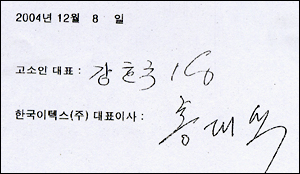 2004년 12월 8 일
고소인 대표 : 강흔국
한국이텍스(주) 대표이사 :